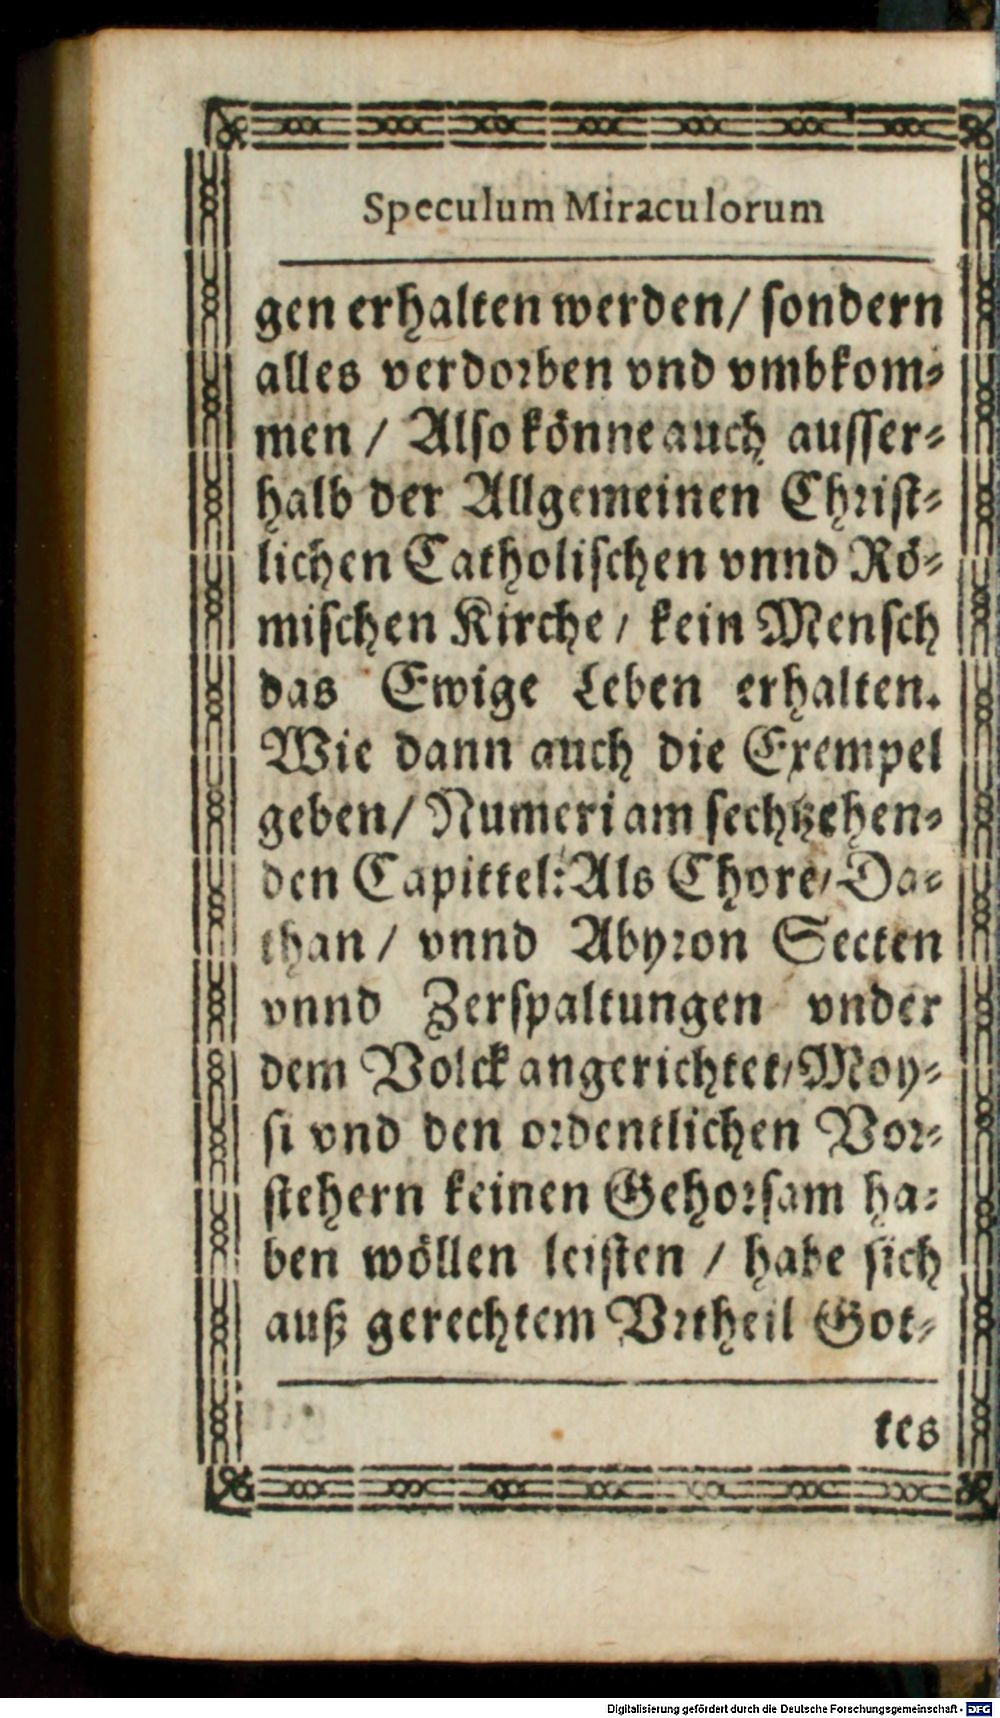 Speculum Miraculorum
gen erhalten werden/ sondern
alles verdorben vnd vmbkom⸗
men / Also könne auch ausser⸗
halb der Allgemeinen Christ⸗
lichen Catholischen vnnd Rö⸗
mischen Kirche / kein Mensch
das Ewige Leben erhalten.
Wie dann auch die Exempel
geben/ Numeri am sechtzehen⸗
den Capittel: Als Chore/ Da⸗
than / vnnd Abyron Secten
vnnd Zerspaltungen vnder
dem Volck angerichtet/ Moy⸗
si vnd den ordentlichen Vor⸗
stehern keinen Gehorsam ha⸗
ben wöllen leisten / habe sich
auß gerechtem Vrtheil Got⸗
tes
Digitalisierung gefördert durch die Deutsche Forschungsgemeinschaft - DFG